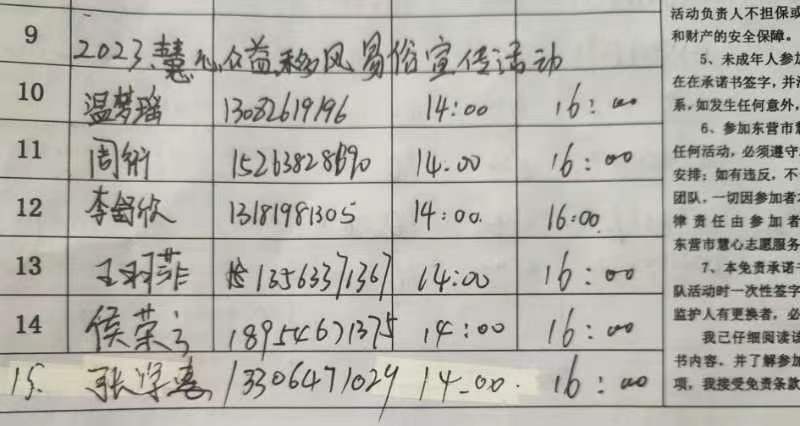 9 2023慧心公益移风易俗宣传活动
10 温梦瑶 13082619196 14:00 16:00
11 周 15263828690 14.00 16:00
12 李舒欣 13181981305 14:00. 16:00
13 王羽菲 13563371367 14:00 16:00
14 侯荣 18954671375 14:00 16:00
15. 张学惠 13306471029 14-00. 16:00
活动负责人不担保或
和财产的安全保障。
5、未成年人参加
在在承诺书签字,并
系,如发生任何意外,
6、参加东营市慧
任何活动,必须遵守
安排;如有违反,不
团队,一切因参加者
律责任由参加者
东营市慧心志愿服务
7、本免责承诺书
队活动时一次性签字
监护人有更换者,必
我已仔细阅读该
书内容,并了解参加
项,我接受免责条款